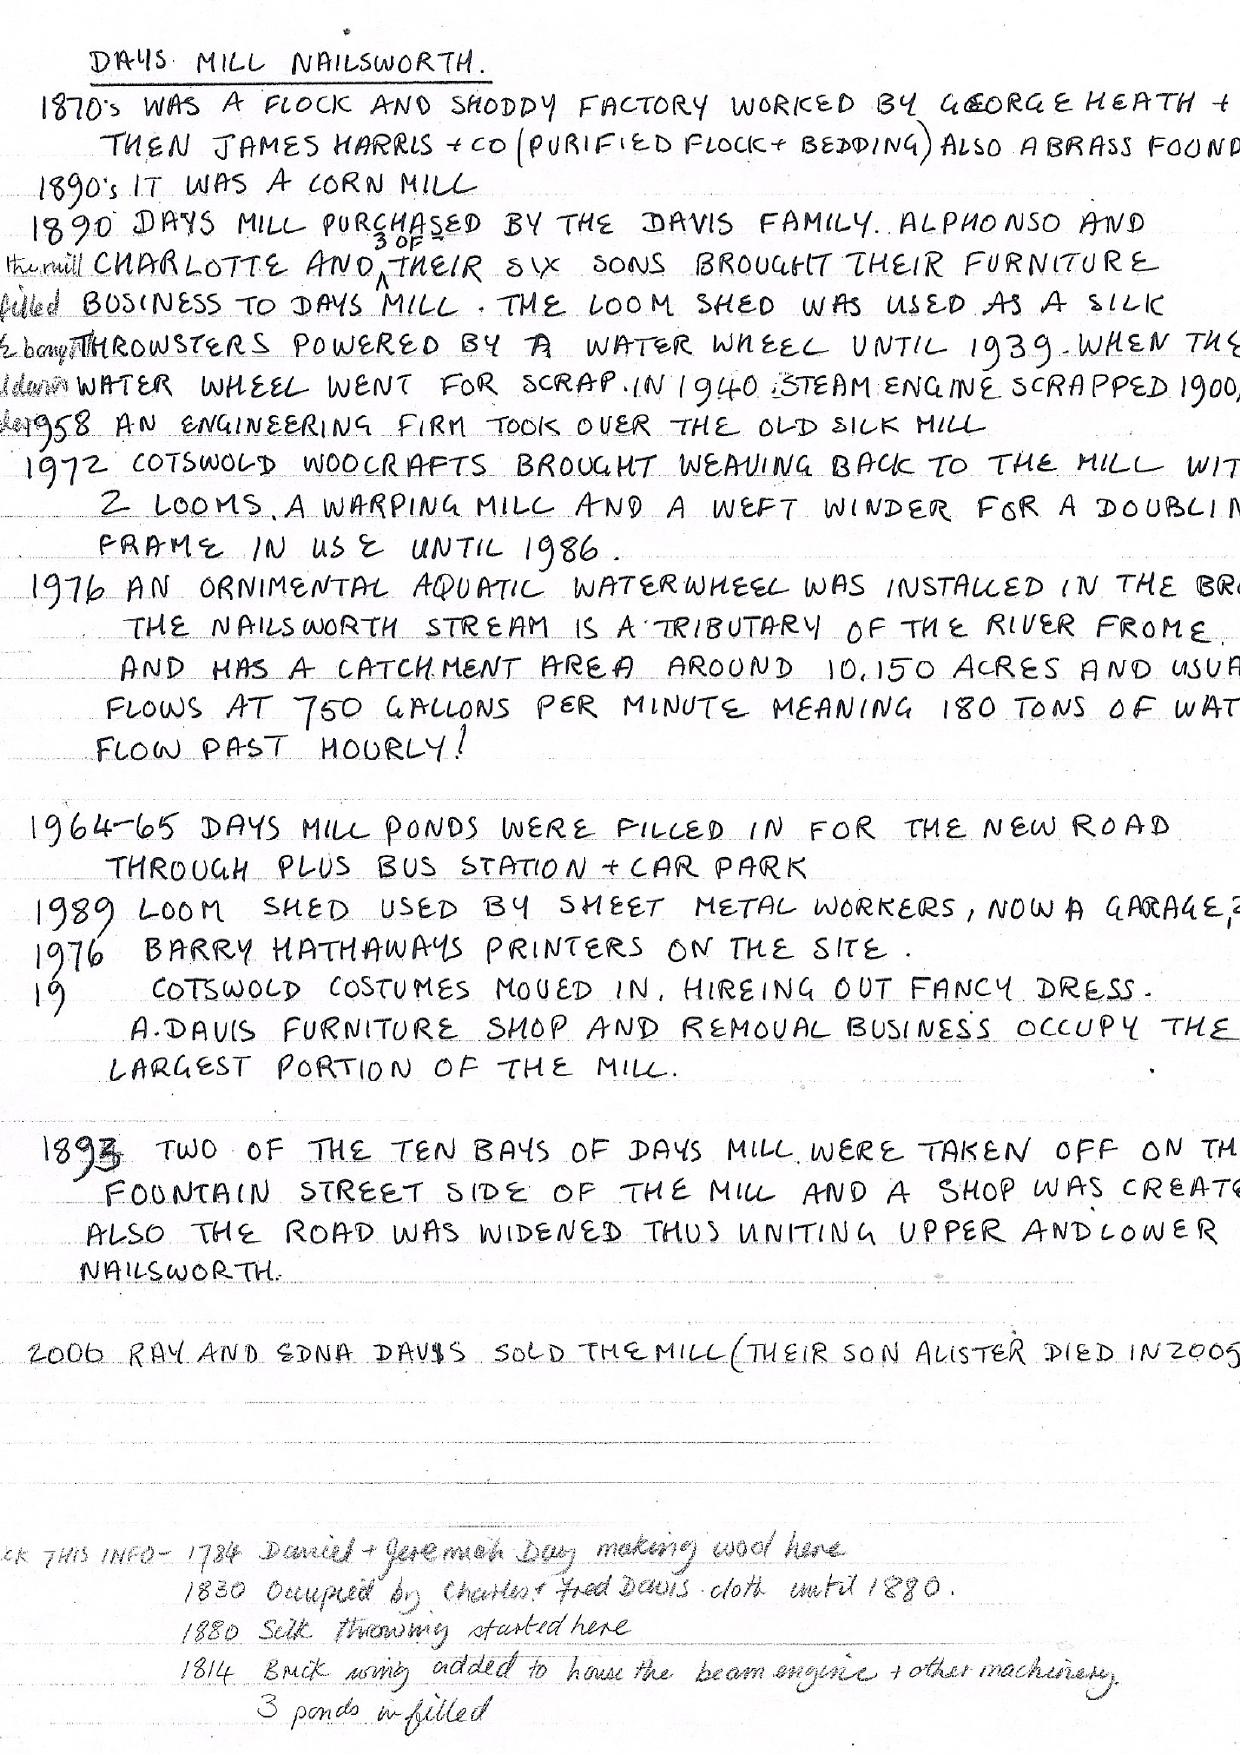 DAYS MILL NAILSWORTH.
1870's WAS A FLOCK AND SHODDY FACTORY WORKED BY GEORGE HEATH +
THEN JAMES HARRIS + CO (PURIFIED FLOCK + BEDDING) ALSO A BRASS FOUND
1890's IT WAS A CORN MILL
1890 DAYS MILL PURCHASED BY THE DAVIS FAMILY. ALPHONSO AND
the mill CHARLOTTE AND 3 OF THEIR SIX SONS BROUGHT THEIR FURNITURE
filled BUSINESS TO DAYS MILL. THE LOOM SHED WAS USED AS A SILK
THROWSTERS POWERED BY A WATER WHEEL UNTIL 1939. WHEN THE
WATER WHEEL WENT FOR SCRAP. IN 1940 STEAM ENGINE SCRAPPED 1900,
1958 AN ENGINEERING FIRM TOOK OVER THE OLD SILK MILL
1972 COTSWOLD WOOCRAFTS BROUGHT WEAVING BACK TO THE MILL WIT
2 LOOMS, A WARPING MILL AND A WEFT WINDER FOR A DOUBLIN
FRAME IN USE UNTIL 1986.
1976 AN ORNIMENTAL AQUATIC WATERWHEEL WAS INSTALLED IN THE BRO
THE NAILSWORTH STREAM IS A TRIBUTARY OF THE RIVER FROME
AND HAS A CATCHMENT AREA AROUND 10,150 ACRES AND USUA
FLOWS AT 750 GALLONS PER MINUTE MEANING 180 TONS OF WAT
FLOW PAST HOURLY!
1964-65 DAYS MILL PONDS WERE FILLED IN FOR THE NEW ROAD
THROUGH PLUS BUS STATION + CAR PARK
1989 LOOM SHED USED BY SHEET METAL WORKERS, NOW A GARAGE,
1976 BARRY HATHAWAYS PRINTERS ON THE SITE.
19 COTSWOLD COSTUMES MOVED IN, HIREING OUT FANCY DRESS.
A. DAVIS FURNITURE SHOP AND REMOVAL BUSINESS OCCUPY THE
LARGEST PORTION OF THE MILL.
1893 TWO OF THE TEN BAYS OF DAYS MILL WERE TAKEN OFF ON TH
FOUNTAIN STREET SIDE OF THE MILL AND A SHOP WAS CREATE
ALSO THE ROAD WAS WIDENED THUS UNITING UPPER AND LOWER
NAILSWORTH.
2006 RAY AND EDNA DAVIS SOLD THE MILL (THEIR SON ALISTER DIED IN 2005
CK THIS INFO - 1784 Daniel + Jeremiah Day making wool here
1830 Occupied by Charles + Fred Davis cloth until 1880.
1880 Silk throwing started here
1814 Brick wing added to house the beam engine + other machinery.
3 ponds in filled